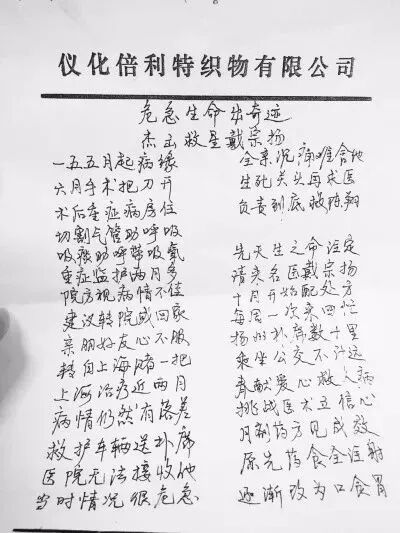 仪化倍利特织物有限公司
危急生命出奇迹
杰出救星戴宗扬
一五五月起病缘
六月手术把刀开
术后重症病房住
切割气管助呼吸
吸痰助呼带吸氧
重症监护两月多
院方视病情不佳
建议转院或回取
亲朋好友心不服
转向上海赌一把
上海治疗近两月
病情仍然有落差
救护车辆送扑席
医院无法接收他
当时情况很危急
全亲况痛难舍他
生死关头再求医
负责到底救陈翔
先天生之命注定
请来名医戴宗扬
十月开始配处方
每周一次亲四忙
扬州扑席数十里
乘坐公交不许远
奉献爱心救人病
挑战医术立信心
月剂药方见成效
原先药食全注射
逐渐改为口食胃